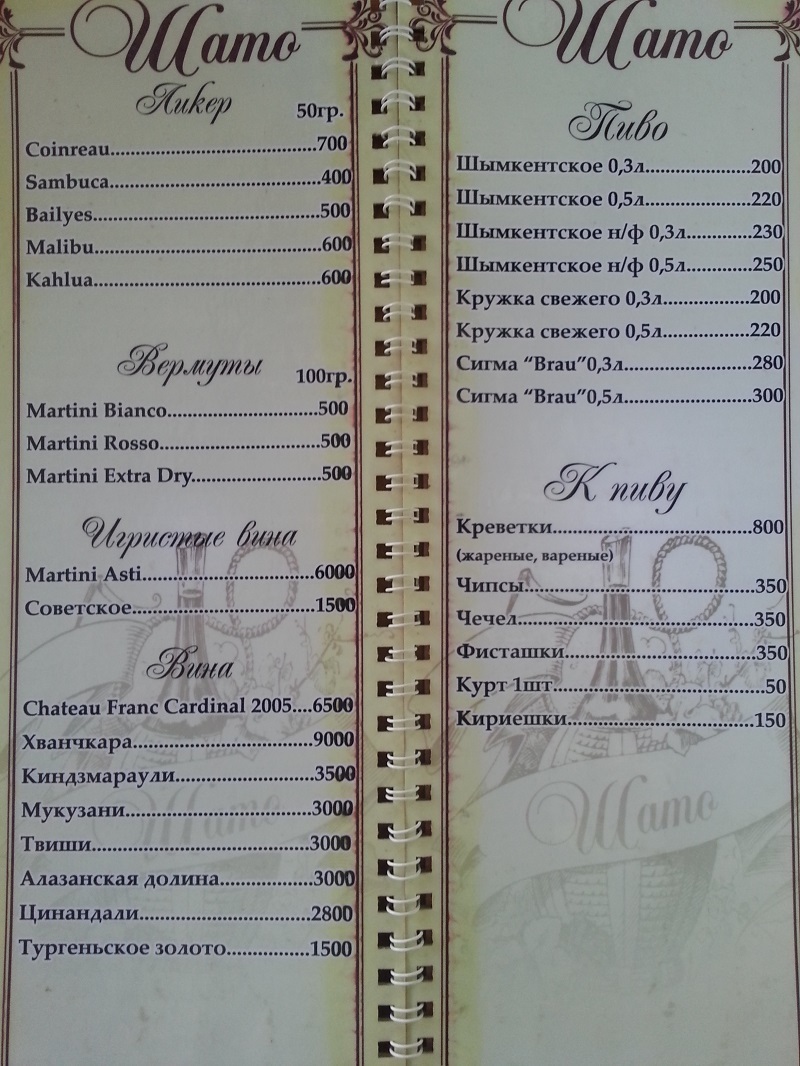 Шато
Ликер 50гр.
Coinreau.....700
Sambuca.....400
Bailyes.....500
Malibu.....600
Kahlua.....600
Вермуты 100гр.
Martini Bianco.....500
Martini Rosso.....500
Martini Extra Dry.....500
Игристые вина
Martini Asti.....6000
Советское.....1500
Вина
Chateau Franc Cardinal 2005....6500
Хванчкара.....9000
Киндзмараули.....3500
Мукузани.....3000
Твиши.....3000
Алазанская долина.....3000
Цинандали.....2800
Тургеньское золото.....1500
Шато
Шато
Пиво
Шымкентское 0,3л.....200
Шымкентское 0,5л.....220
Шымкентское н/ф 0,3л.....230
Шымкентское н/ф 0,5л.....250
Кружка свежего 0,3л.....200
Кружка свежего 0,5л.....220
Сигма “Brau”0,3л.....280
Сигма “Brau”0,5л.....300
К пиву
Креветки.....800
(жареные, вареные)
Чипсы.....350
Чечел.....350
Фисташки.....350
Курт 1шт.....50
Кириешки.....150
Шато